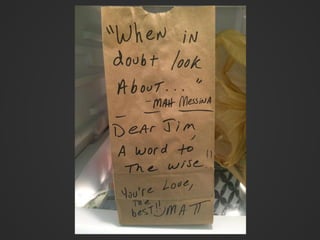 "When in
doubt look
About..."
- MAH Messina
Dear Jim,
A word to
The wise!!
You're Love,
The
best!! MATT